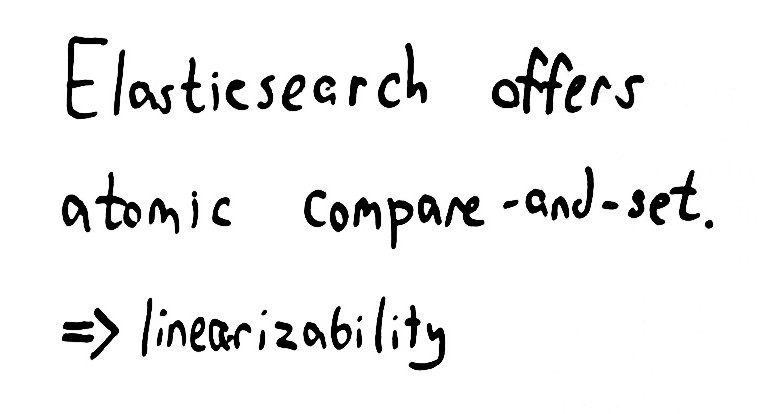 Elasticsearch offers
atomic compare-and-set.
=> linearizability